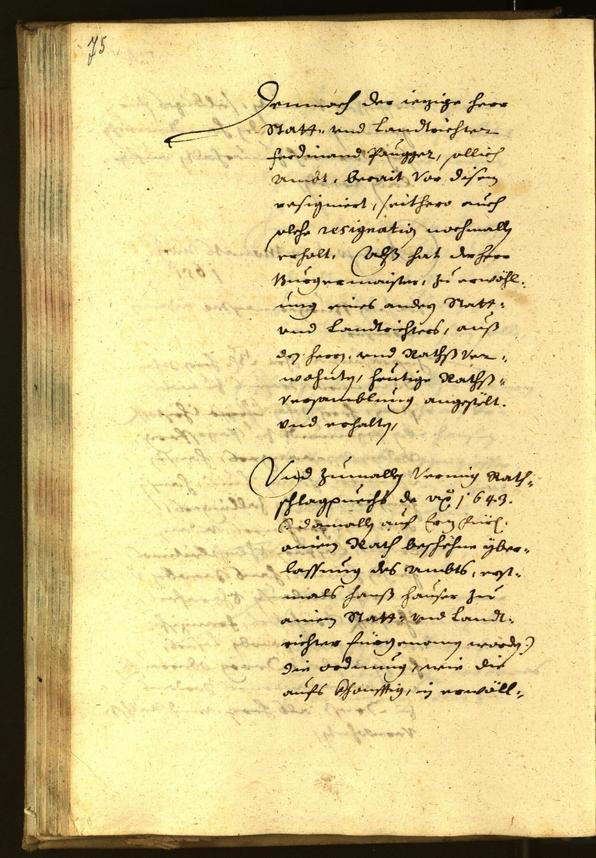 75
Demnach der iezige herr
Statt- vnd Landtrichter
Ferdinand Paugger, sollich
Ambt, berait vor disem
resigniert, seithero auch
solche resignation nochmallß
erholt. Alß hat der herr
Burgermaister, zu erwöhl-
ung eines andern Statt-
vnd Landtrichters, auß
den herrn, vnd Rathß ver-
wohnten, heutige Rathß-
versamblung angestelt.
vnd erhalten,
Vnd zumallen vermög Rath-
schlagpuechs de 1643.
damallß auch
ainem Rath beschehne yber-
lassung des Ambts, erst-
mals hanß hauser zu
ainem Statt- vnd Landt-
richter fürgenomen worden)
die ordnung, wie die
aufs khonfftig, in erwöll-